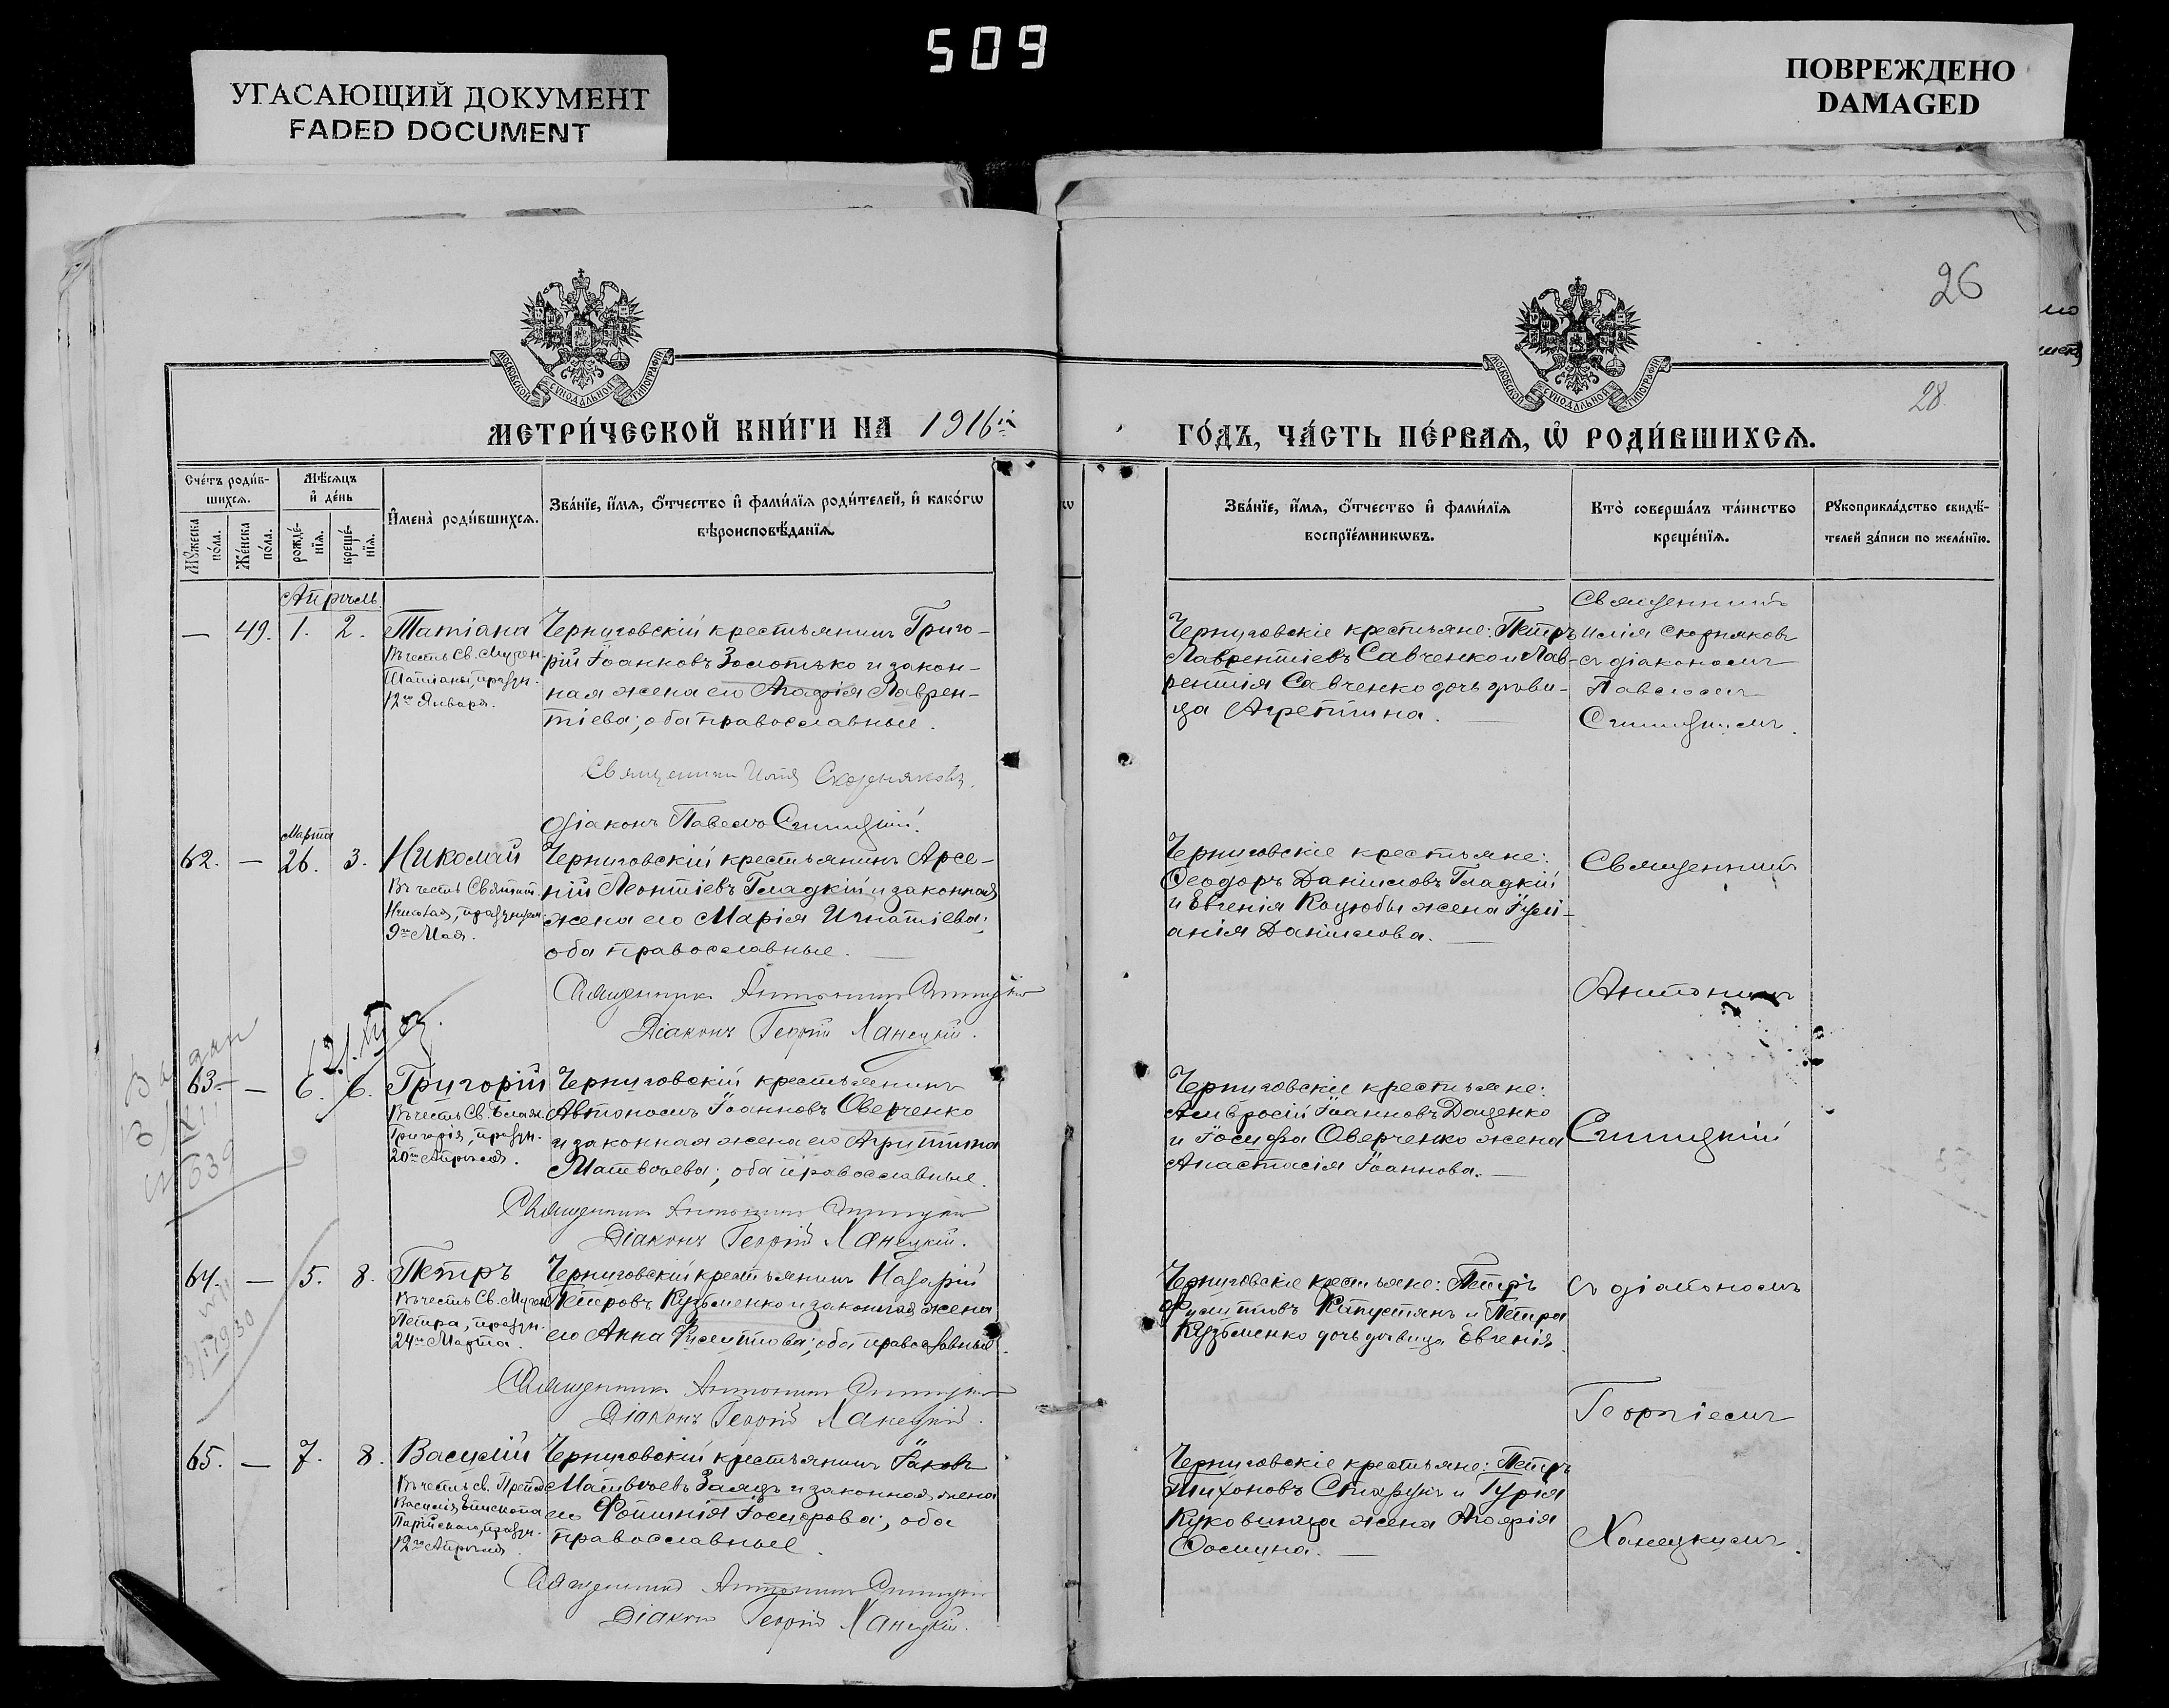 509
УГАСАЮЩИЙ ДОКУМЕНТ
FADED DOCUMENT
ПОВРЕЖДЕНО
DAMAGED
26
28
МОСКОВСКОЙ СѴНОДАЛЬНОЙ ТИПОГРАФІИ
МОСКОВСКОЙ СѴНОДАЛЬНОЙ ТИПОГРАФІИ
МЕТРИ́ЧЕСКОЙ КНИ́ГИ НА 1916й
ГО́ДЪ, ЧА́СТЬ ПЕ́РВАѦ, Ѡ҆ РОДИ́ВШИХСѦ.
Сче́тъ роди́в-
шихсѧ.
Мꙋ́жеска
по́ла.
Же́нска
по́ла.
Мѣ́сѧцъ
и҆ де́нь
рожде́-
нїѧ.
креще́-
нїѧ.
И҆мена̀ роди́вшихсѧ.
Зва́нїе, и҆́мѧ, ѻ҆́тчество и҆ фами́лїѧ роди́телей, и҆ како́гѡ
вѣроисповѣ́данїѧ.
Зва́нїе, и҆́мѧ, ѻ҆́тчество и҆ фами́лїѧ
воспрїе́мникѡвъ.
Кто̀ соверша́лъ та́инство
креще́нїѧ.
Рꙋкоприкла́дство свидѣ́-
телей за́писи по жела́нїю.
Апрѣль
— 49. 1. 2.
Татіана
Въ честь Св. Мучен.
Татіаны, праздн.
12го Января.
Черниговскій крестьянинъ Григо-
рій Іоанновъ Золотько и закон-
ная жена его Агафія Лаврен-
тіева; оба православные.
Священникъ Илія Скорняковъ.
Діаконъ Павелъ Силицкій.
Черниговскіе крестьяне: Петръ
Лаврентіевъ Савченко и Лав-
рентія Савченко дочь дѣви-
ца Агреппина.
Священникъ
Илія Скорняковъ
съ діакономъ
Павломъ
Марта
62. — 26. 3.
Николай
Въ честь Святит.
Николая, празднуем.
9го Мая.
Черниговскій крестьянинъ Арсе-
ній Леонтіевъ Гладкій и законная
жена его Марія Игнатіева;
оба православные.
Священникъ Антонинъ
Діаконъ Георгій Ханецкій.
Черниговскіе крестьяне:
Ѳеодоръ Даніиловъ Гладкій
и Евгенія Коцюбы жена Іулі-
анія Даніилова.
Священникъ
Антонинъ
63. — 6. 6.
Григорій
Въ честь Св. Блаж.
Григорія, праздн.
20го Апрѣля.
Черниговскій крестьянинъ
Автономъ Іоанновъ Оверченко
и законная жена его Агриппина
Матвѣева; оба православные.
Священникъ Антонинъ
Діаконъ Георгій Ханецкій.
Черниговскіе крестьяне:
Амвросій Іоанновъ Даценко
и Іосифа Оверченко жена
Анастасія Іоаннова.
64. — 5. 8.
Петръ
Въ честь Св. Мучен.
Петра, праздн.
24го Марта.
Черниговскій крестьянинъ Назарій
Петровъ Кузьменко и законная жена
его Анна Филиппова; оба православные.
Священникъ Антонинъ
Діаконъ Георгій Ханецкій.
Черниговскіе крестьяне: Петръ
Филипповъ Капустянъ и Петра
Кузьменко дочь дѣвица Евгенія.
съ діакономъ
Георгіемъ
65. — 7. 8.
Василій
Въ честь св. Препод.
Василія, Епископа
Парійскаго, праздн.
12го Апрѣля.
Черниговскій крестьянинъ Іаковъ
Матвѣевъ Заядъ и законная жена
его Фотинія Іосифова; оба
православные.
Священникъ Антонинъ
Діаконъ Георгій Ханецкій.
Черниговскіе крестьяне: Петръ
Тихоновъ и Гурія
Куковинца жена Агафія
Ханецкимъ.